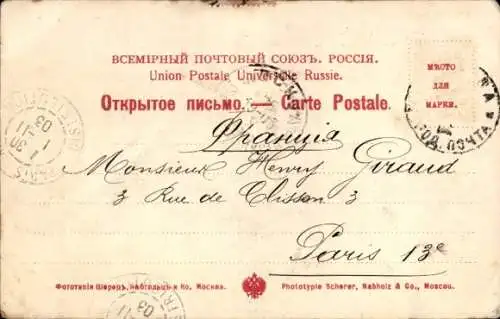 ВСЕМІРНЫЙ ПОЧТОВЫЙ СОЮЗЪ. РОССІЯ.
Union Postale Universelle Russie.
МѢСТО
ДЛЯ
МАРКИ.
Открытое письмо. — Carte Postale.
Франція
Monsieur Henry Giraud
3 Rue de Clisson 3
Paris 13e
ПОЧТА
PARIS
1 30
1
03
Фототипія Шереръ, Набгольцъ и Ко, Москва.
Phototypie Scherer, Nabholz & Co., Moscou.
03